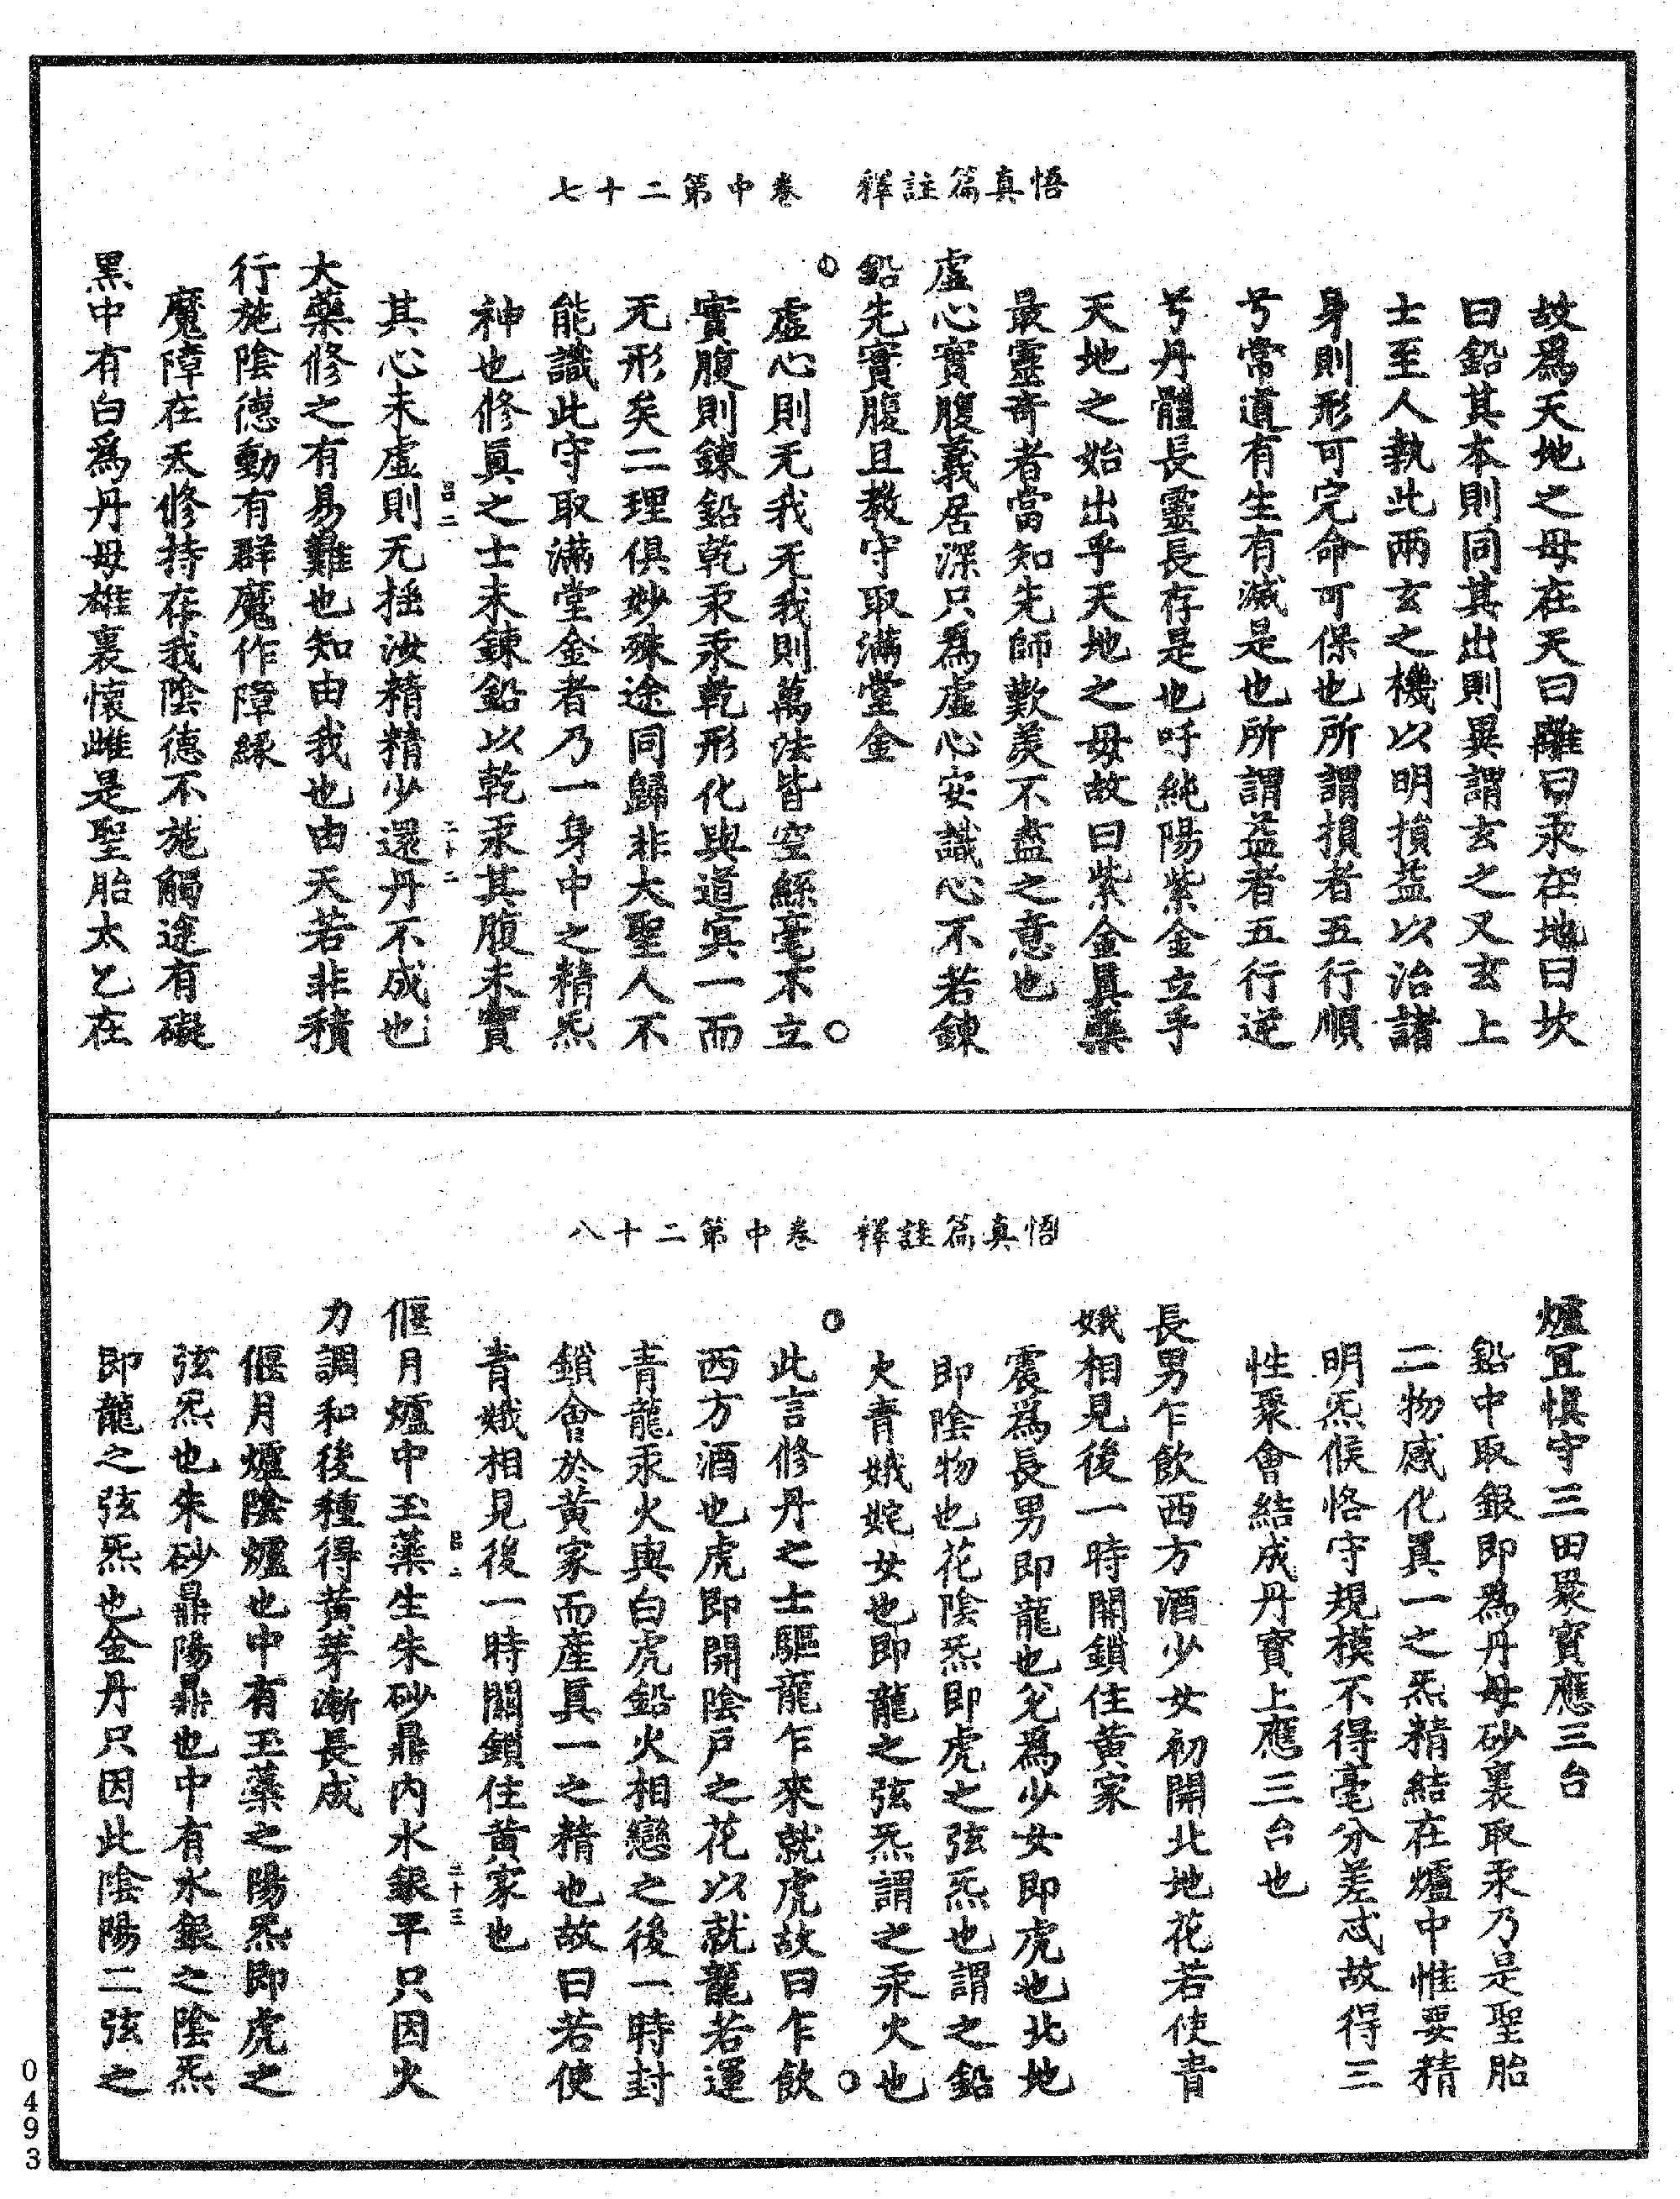 悟真篇註釋　卷中第二十七
故爲天地之母在天曰離曰汞在地曰坎
曰鉛其本則同其出則異謂玄之又玄上
士至人執此兩玄之機以明損益以治諸
身則形可完命可保也所謂損者五行順
兮常道有生有滅是也所謂益者五行逆
兮丹體長靈長存是也吁純陽紫金立乎
天地之始出乎天地之母故曰紫金真藥
最靈奇者當知先師歎羨不盡之意也
虛心實腹義居深只爲虛心安識心不若鍊
鉛先實腹且教守取滿堂金
虛心則无我无我則萬法皆空絲毫不立
實腹則鍊鉛乾汞汞乾形化與道冥一而
无形矣二理俱妙殊途同歸非大聖人不
能識此守取滿堂金者乃一身中之精炁
神也修眞之士未鍊鉛以乾汞其腹未實
其心未虛則无搖汝精精少還丹不成也
二十二
大藥修之有易難也知由我也由天若非積
行施陰德動有群魔作障緣
魔障在天修持存我陰德不施觸途有礙
黑中有白爲丹母雄裏懷雌是聖胎太乙在
悟真篇註釋　卷中第二十八
爐宜愼守三田聚寳應三台
鉛中取銀即爲丹母砂裏取汞乃是聖胎
二物感化眞一之炁精結在爐中惟要精
明炁候恪守規模不得毫分差忒故得三
性聚會結成丹寳上應三台也
長男乍飲西方酒少女初開北地花若使青
娥相見後一時開鎖住黃家
震爲長男即龍也兌爲少女即虎也北地
即陰物也花陰炁即虎之弦炁也謂之鉛
火青娥姹女也即龍之弦炁謂之汞火也
此言修丹之士驅龍乍來就虎故曰乍飲
西方酒也虎即開陰戶之花以就龍若運
青龍汞火與白虎鉛火相戀之後一時封
鎖會於黃家而產眞一之精也故曰若使
青娥相見後一時關鎖住黃家也
二十三
偃月爐中玉蘂生朱砂鼎內水銀平只因火
力調和後種得黃芽漸長成
偃月爐陰爐也中有玉蘂之陽炁即虎之
弦炁也朱砂鼎陽鼎也中有水銀之陰炁
即龍之弦炁也金丹只因此陰陽二弦之
0493